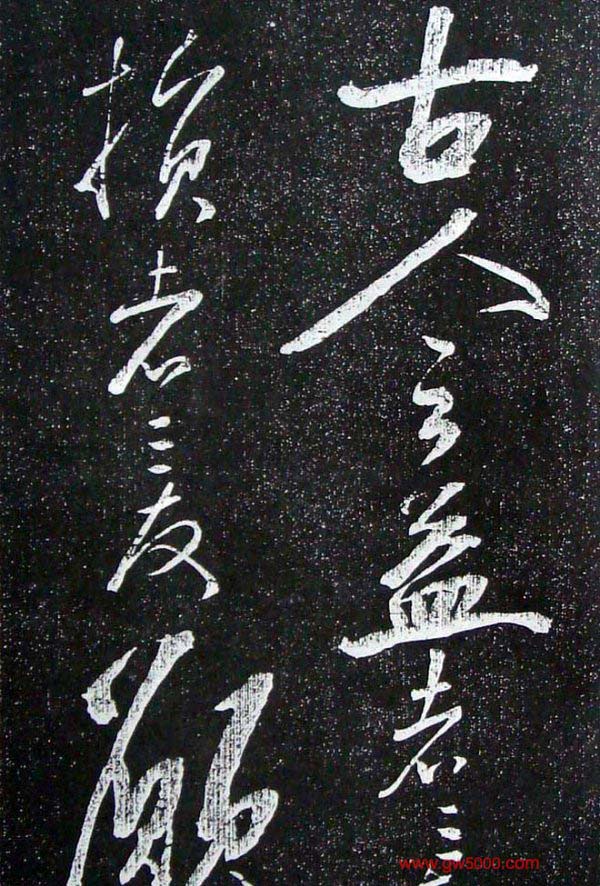 古人云益者三
損者三友願
www.gw5000.com